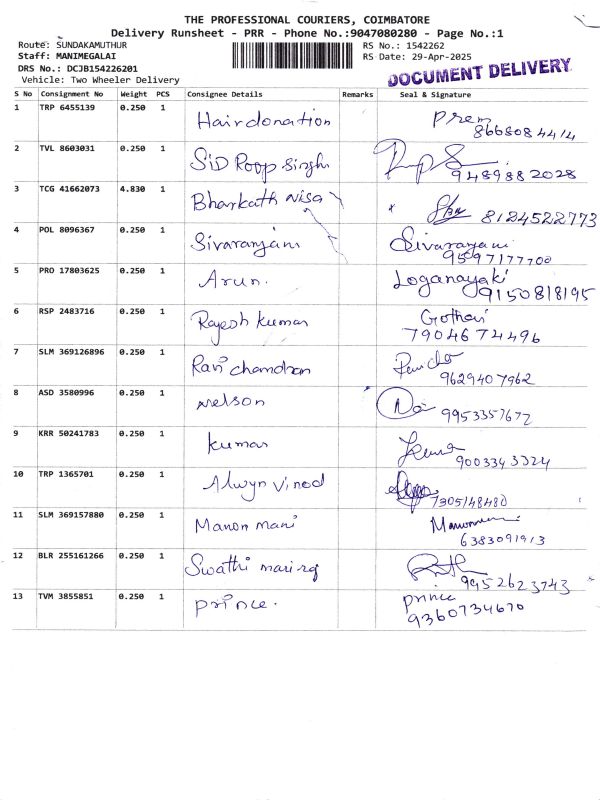 THE PROFESSIONAL COURIERS, COIMBATORE
Delivery Runsheet - PRR - Phone No.:9047080280 - Page No.:1
Route: SUNDAKAMUTHUR RS No.: 1542262
Staff: MANIMEGALAI RS Date: 29-Apr-2025
DRS No.: DCJB154226201
DOCUMENT DELIVERY
Vehicle: Two Wheeler Delivery
S No Consignment No Weight PCS Consignee Details Remarks Seal & Signature
1 TRP 6455139 0.250 1 Hairdonation Prem
8668084414
2 TVL 8603031 0.250 1 SiD Roop Singh
9489882028
3 TCG 41662073 4.830 1 Bharkath Nisa 8124522773
4 POL 8096367 0.250 1 Sivaranjani Sivaranjani
9597177700
5 PRO 17803625 0.250 1 Arun. Loganayaki
9150818195
6 RSP 2483716 0.250 1 Rajesh kumar
7904674496
7 SLM 369126896 0.250 1 Ravi chandran
9629407962
8 ASD 3580996 0.250 1 Nelson
9953357672
9 KRR 50241783 0.250 1 Kumar
9003343324
10 TRP 1365701 0.250 1 Alwyn Vinod
7305148480
11 SLM 369157880 0.250 1 Manon mani
6383091913
12 BLR 255161266 0.250 1 Swathi
9952623743
13 TVM 3855851 0.250 1 prince. prince
9360734670